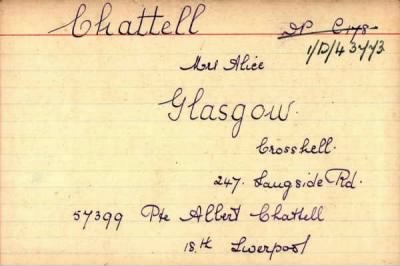 Chattell
DP C178
1/D/4 3773
Mrs Alice
Glasgow.
Crosshell.
247. Langside Rd.
57399 Pte Albert Chattell
18.th Liverpool